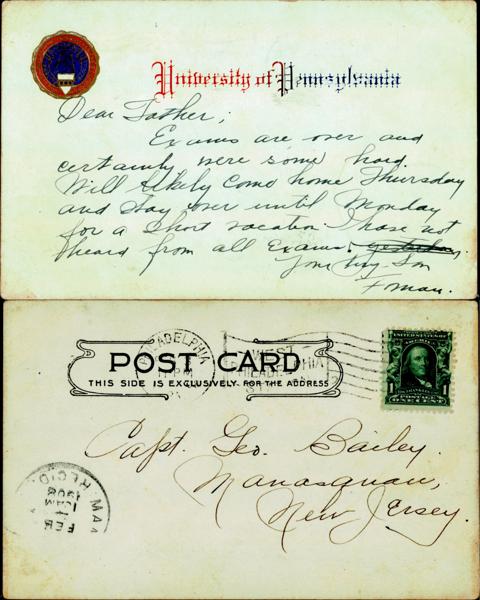 University of Pennsylvania
Dear Father;
Exams are over and
certainly were some hard.
Will likely come home Thursday
and stay over until Monday
for a short vacation. I have not
heard from all exams.
Your Son
PHILADELPHIA
PM
WEST
PHILADELPHIA
POST CARD
THIS SIDE IS EXCLUSIVELY FOR THE ADDRESS
1
Capt. Geo. Bailey.
Manasquan,
New Jersey.
FEB
1908
REC'D.